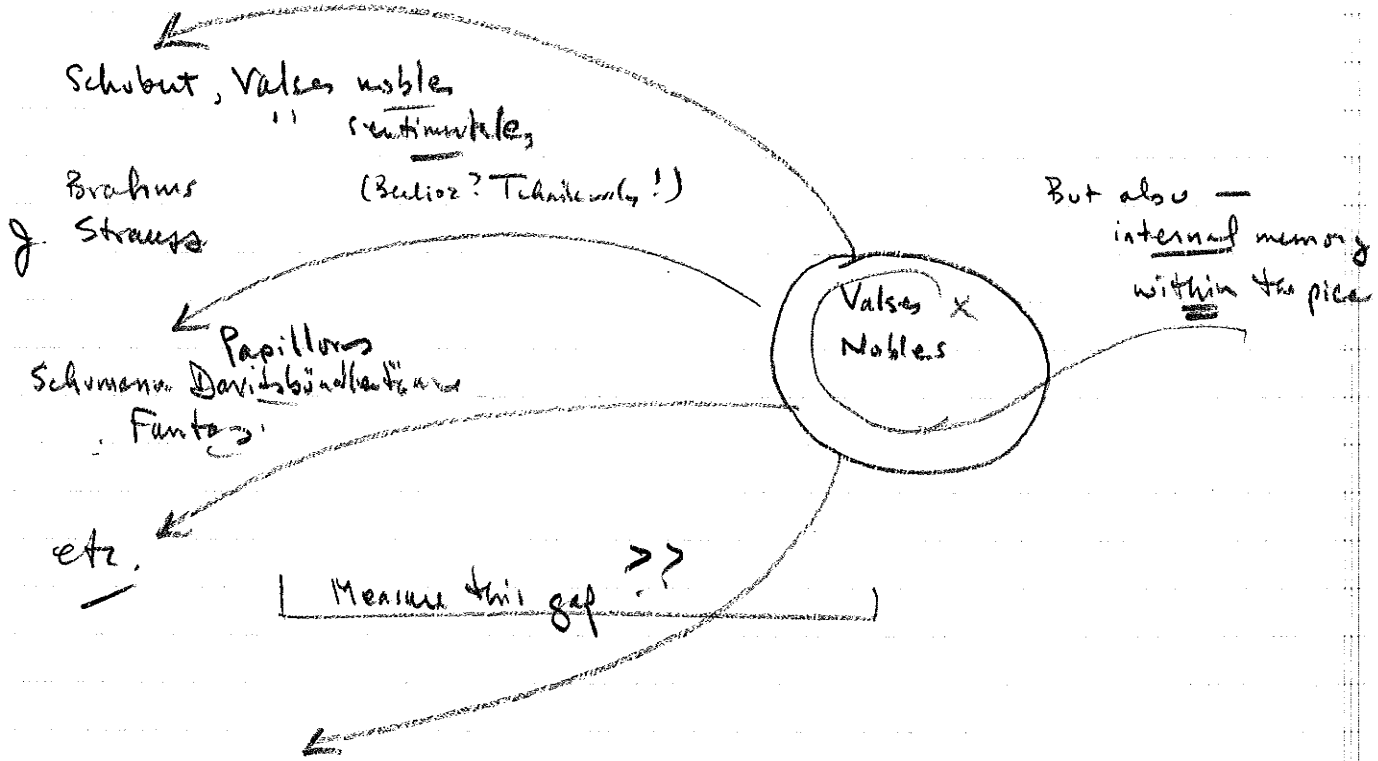 Schubert, Valses nobles
" sentimentales
Brahms (Berlioz? Tchaikovsky!)
J. Strauss
Papillons
Schumann Davidsbündlertänze
Fantasy
etc.
Measure this gap ??
Valses X
Nobles
But also —
internal memory
within the piece